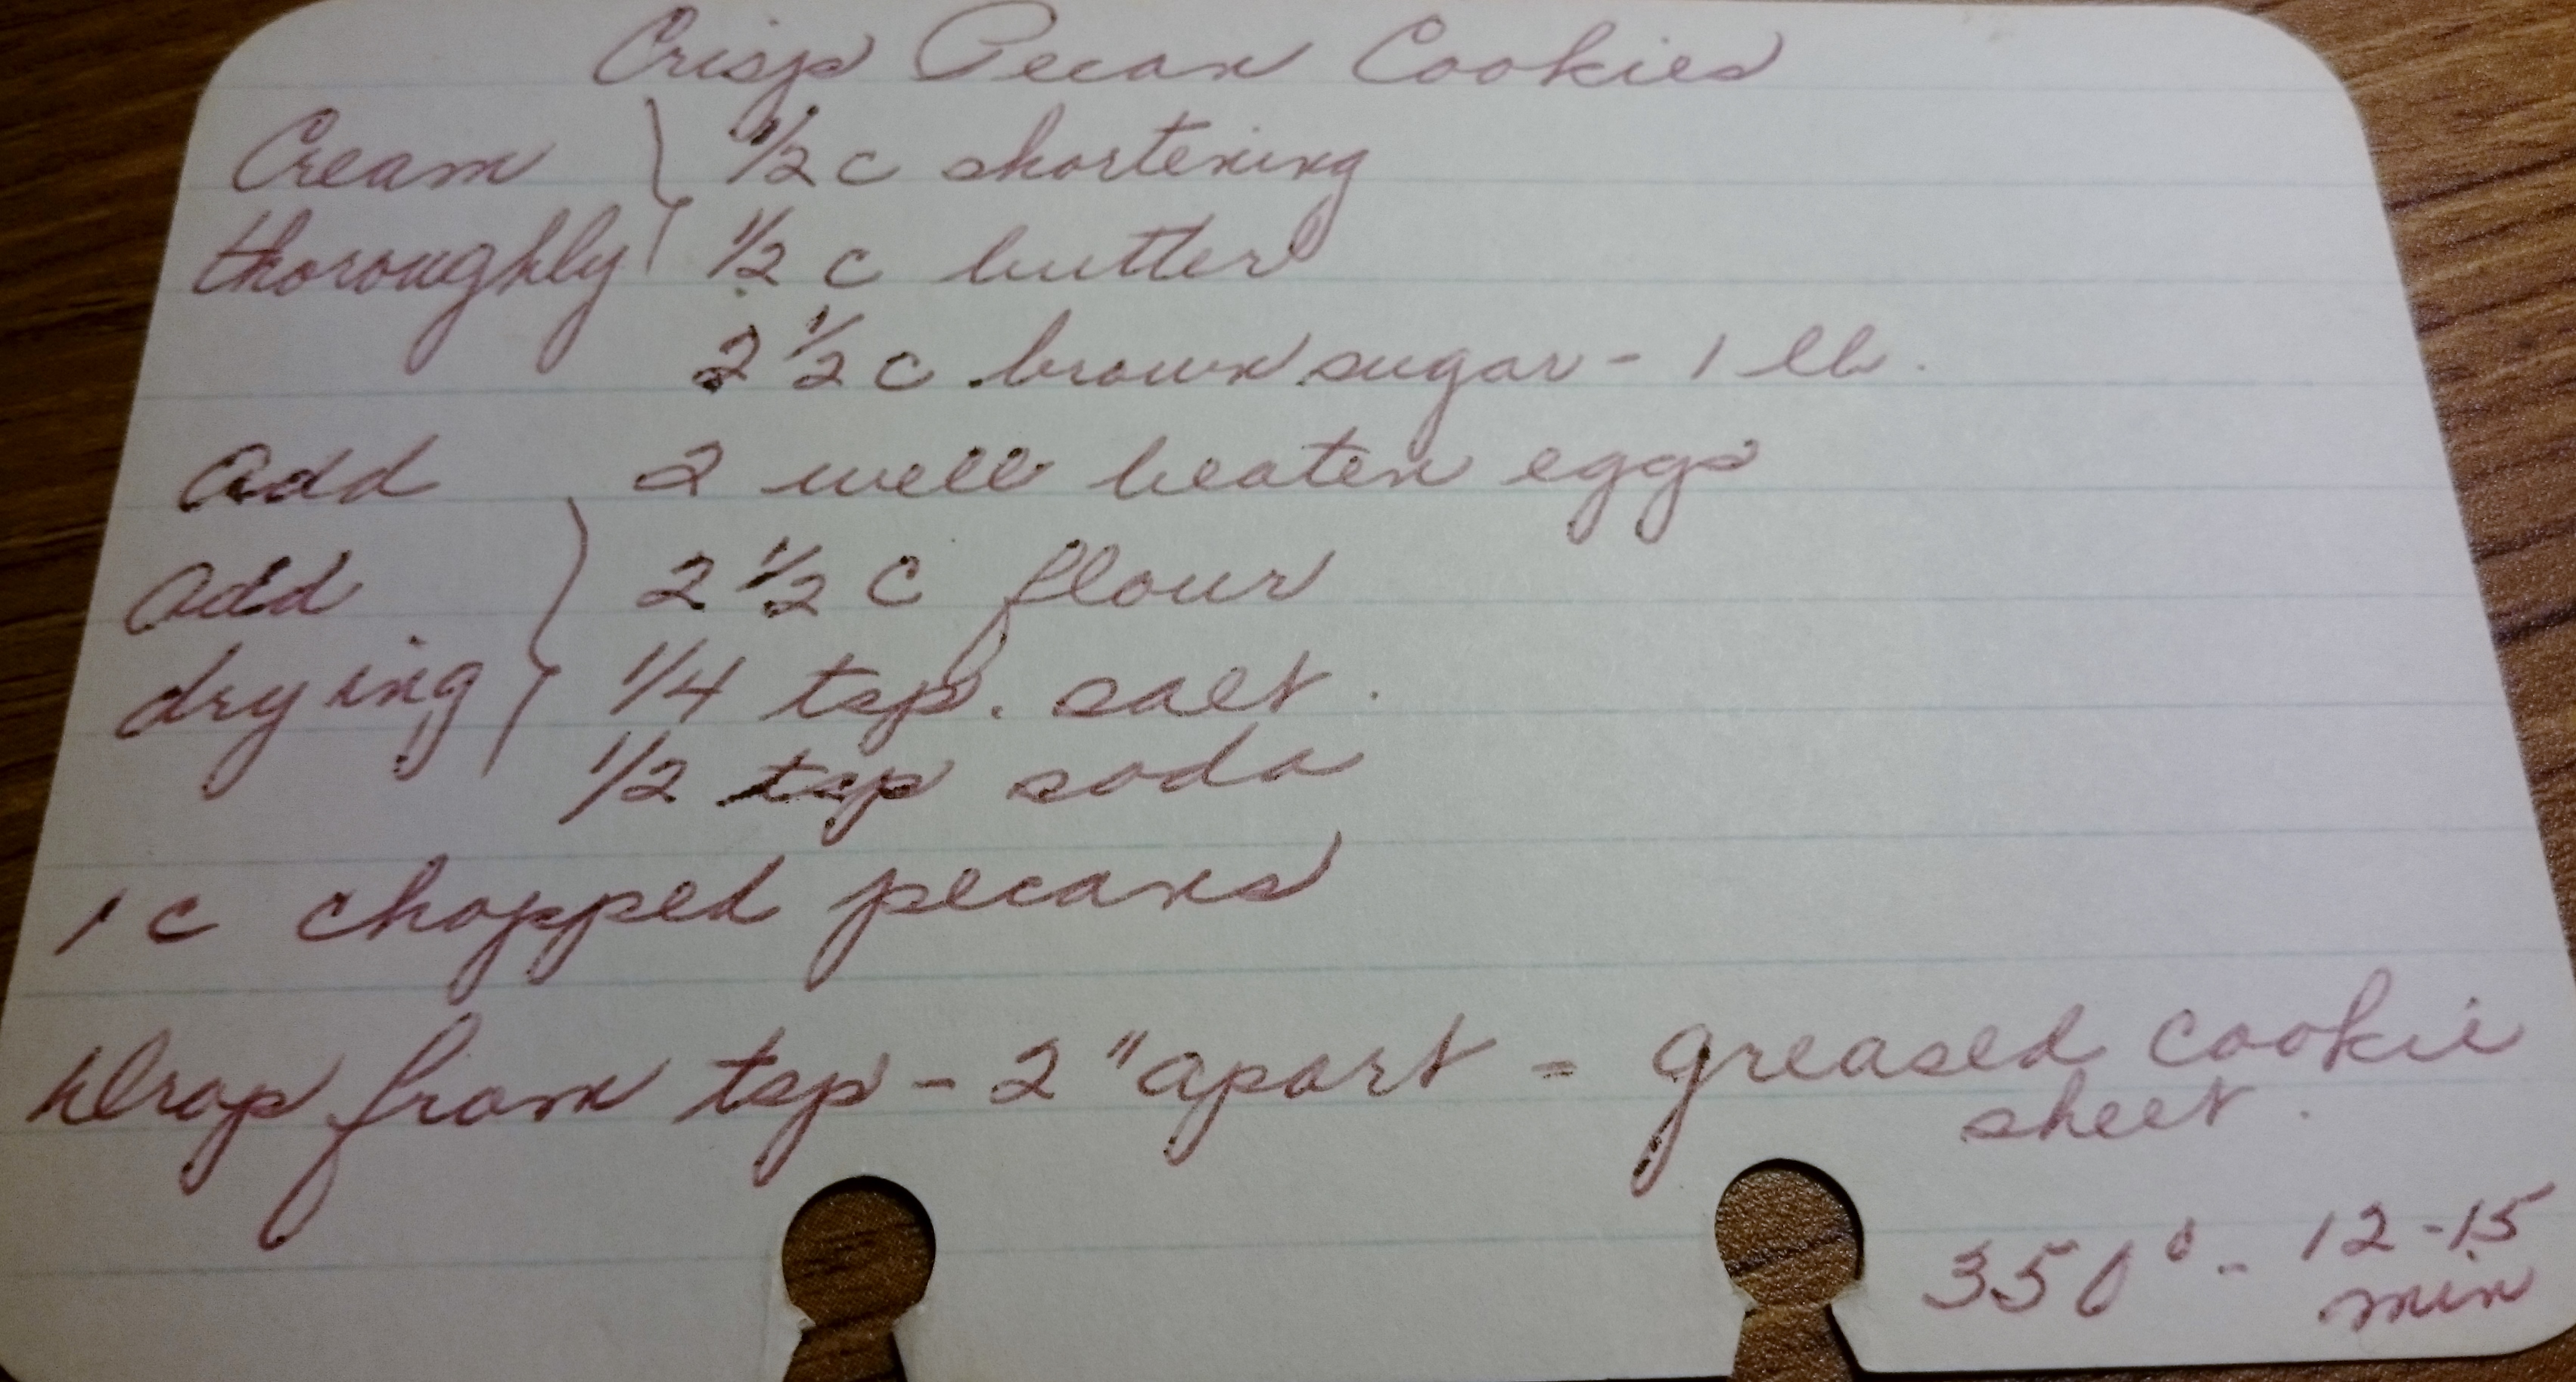 Crisp Pecan Cookies
Cream } 1/2 c shortening
thoroughly 1/2 c butter
2 1/2 c brown sugar - 1 lb.
Add 2 well beaten eggs
Add } 2 1/2 c flour
dry ing 1/4 tsp. salt.
1/2 tsp soda
1 c chopped pecans
Drop from tsp - 2" apart = greased cookie
sheet.
350° - 12-15
min